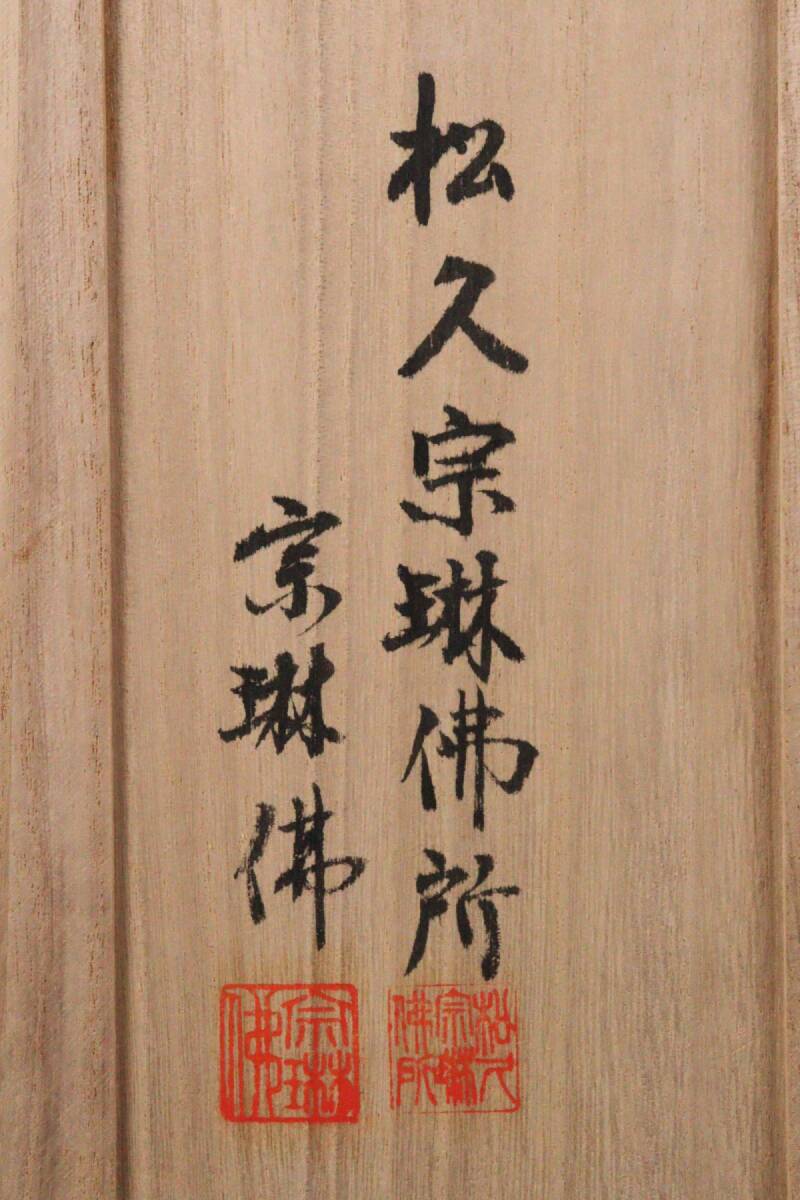 松久宗琳佛所
宗琳佛
松久宗琳佛所
宗琳佛